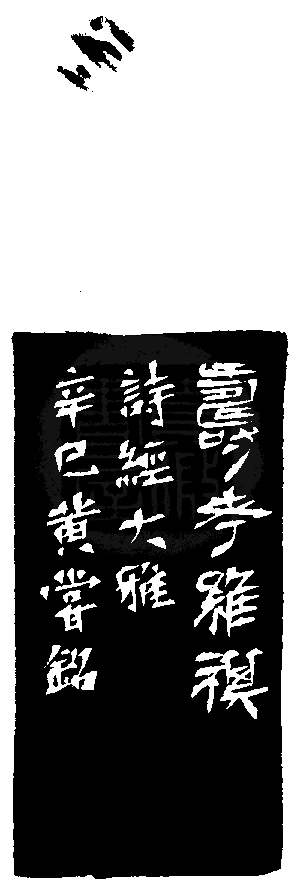 壽考維祺
詩經大雅
辛巳黃嘗銘